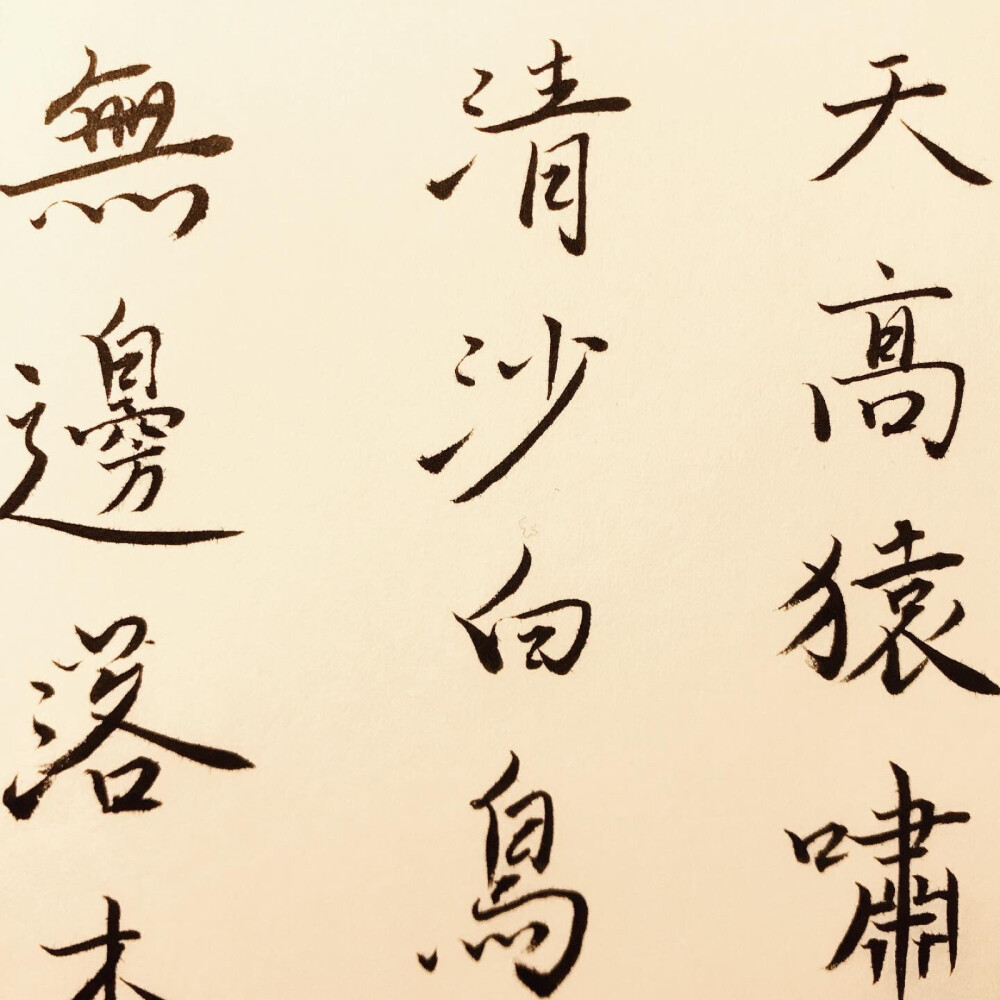 天高猿嘯
清沙白鳥
無邊落木